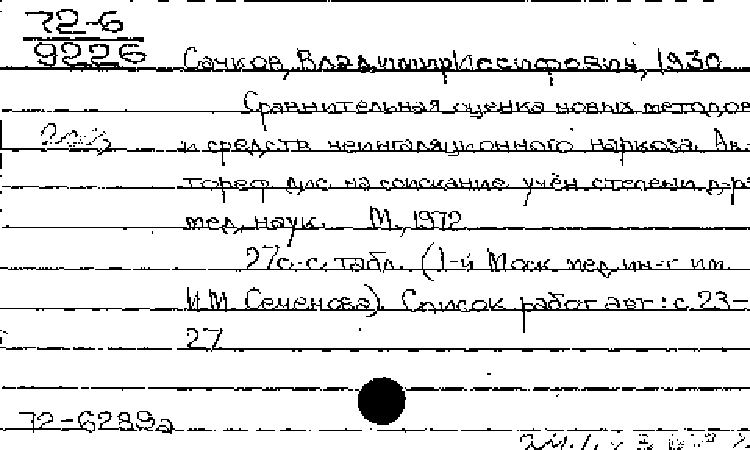 72-6
9226
Сачков, Владимир Иосифович, 1930
Сравнительная оценка новых методов
и средств неингаляционного наркоза. Ав-
тореф. дис. на соискание учён. степени д-ра
мед. наук. М., 1972
27с. с табл. (1-й Моск. мед. ин-т им.
И.М. Сеченова). Список работ авт.: с. 23-
27
72-6289а